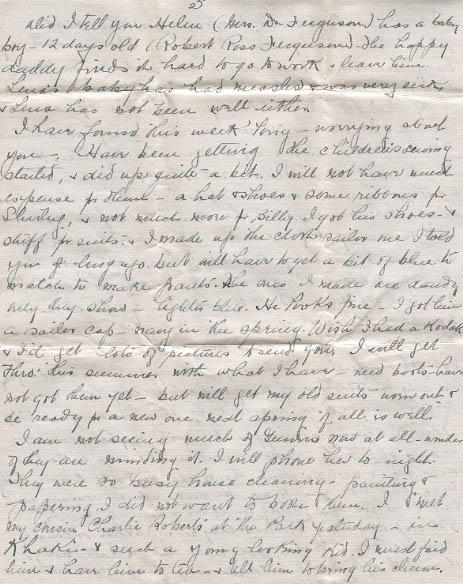 5
Did I tell you Helen (Mrs. Dr. Ferguson) has a baby
boy - 12 days old (Robert Ross Ferguson). The happy
daddy finds it hard to go to work & leave him.
Lena's baby has had measles & was very sick
& Lena has not been well either.
I have found this week long - worrying about
you -. Have been getting the children's sewing
started, & did up quite a bit. I will not have much
expense for them - a hat & shoes & some ribbons for
Shirley, & not much more for Billy. I got his shoes - &
stuff for suits. & I made up the cloth sailor one I told
you of long ago. but will have to get a bit of blue to
match to make pants. The ones I made are dandy
only they show - lighter blue. He looks fine - I got him
a sailor cap - navy in the spring. Wish I had a Kodak
& I'd get lots of pictures to send you. I will get
thro' this summer with what I have - need boots - have
not got them yet - but will get my old suits worn out &
be ready for a new one next spring if all is well.
I am not seeing much of now at all - wonder
if they are minding it. I will phone her to-night.
They were so busy house cleaning - painting &
papering I did not want to bother them. I met
my cousin Charlie Roberts at the Park yesterday - in
Khaki - & such a young looking kid. I must
him & have him to tea - & tell him to bring his chum.